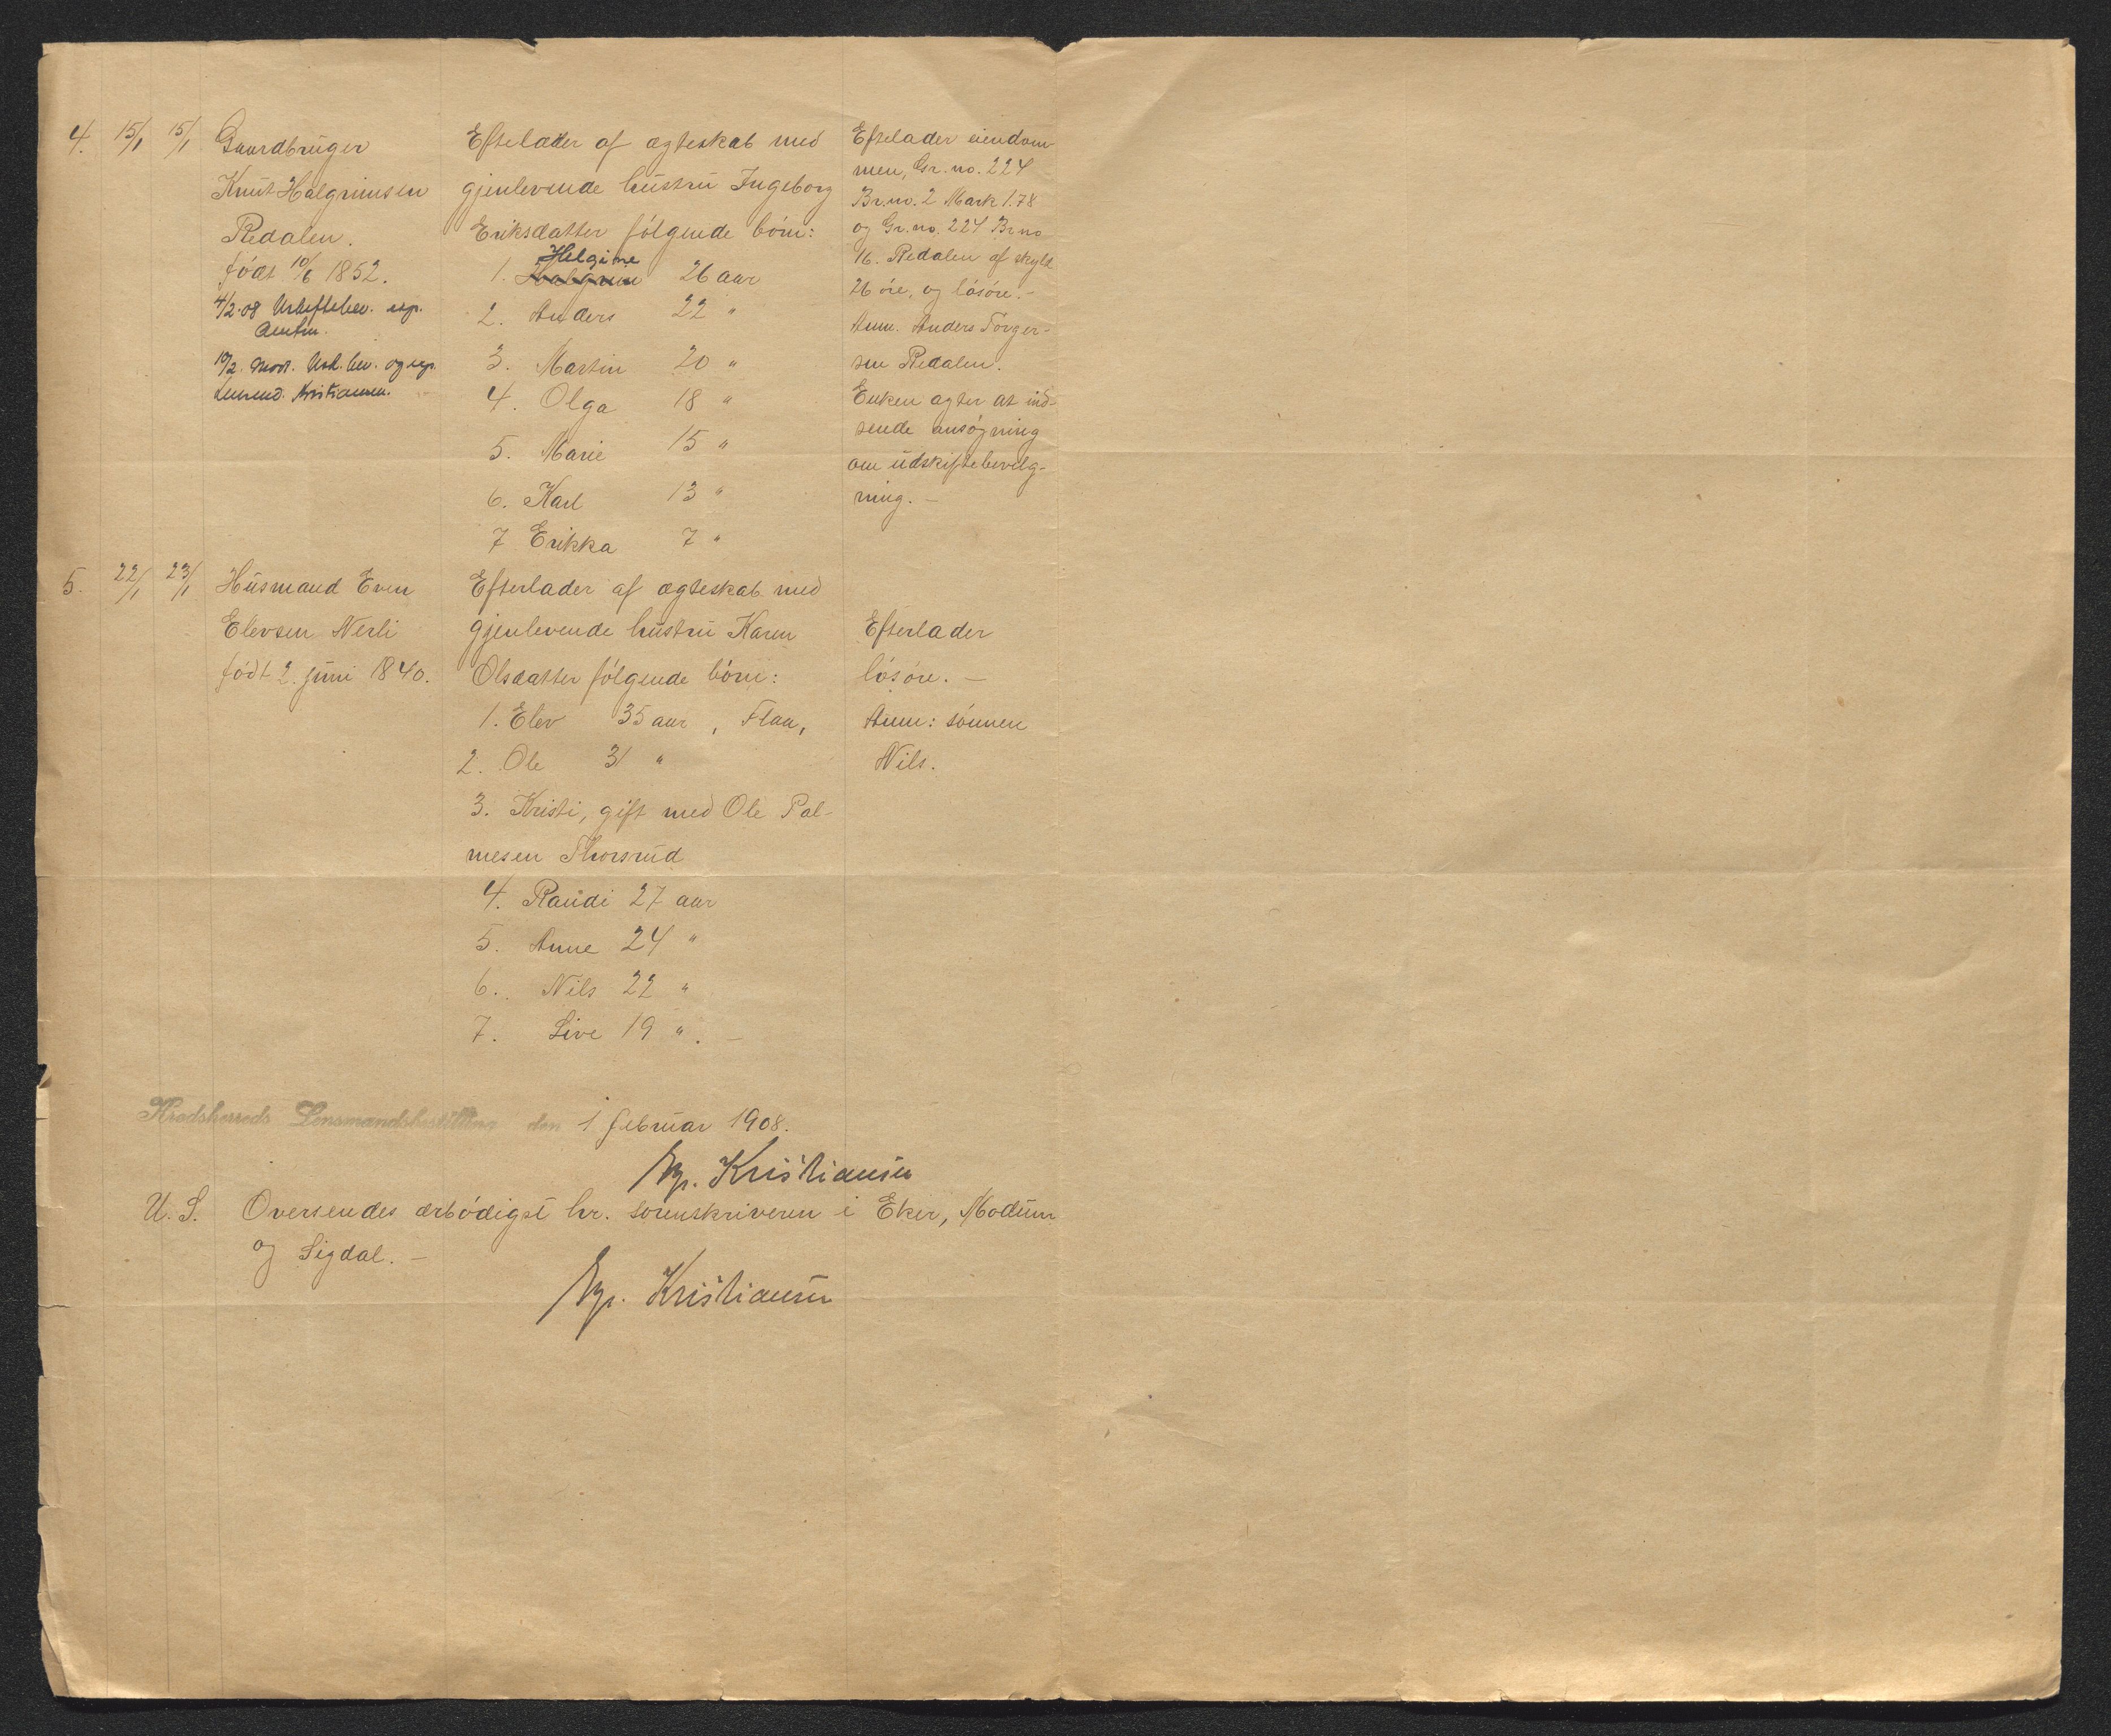 4. 15/1 15/1
Gaardbruger
Knut Halgrimsen
Redalen.
født 10/6 1852.
4/2-08 Uskiftebev. exp.
Amtm.
10/2. Mod. Usk. bev. og exp.
Lensmd. Kristiansen.
Eftelader af ægteskab med
gjenlevende hustru Ingeborg
Eriksdatter følgende børn:
Helgine
1. 26 aar
2. Anders 22 "
3. Martin 20 "
4. Olga 18 "
5. Marie 15 "
6. Karl 13 "
7 Erikka 7 "
Eftelader eiendom
men, Gr. no. 224
Br. no. 2 Mark 1.78
og Gr. no. 224 Br no
16. Redalen af skyld
26 øre, og løsøre. -
Anm. Anders Torger-
sen Redalen.
Enken agter at ind-
sende ansøgning
om udskiftebevilg-
ning. -
5. 22/1 23/1
Husmand Even
Elevsen Nerli
født 2. juni 1840.
Efterlader af ægteskab med
gjenlevende hustru Karen
Olsdatter følgende børn:
1. Elev 35 aar, Flaa,
2. Ole 31 "
3. Kristi, gift med Ole Pal-
mesen Thorsrud
4. Randi 27 aar
5. Anne 24 "
6. Nils 22 "
7. Live 19 ". -
Efterlader
løsøre. -
Anm: sønnen
Nils.
Krødsherreds Lensmandsbestilling den 1 februar 1908.
Kristiansen
U. S. Oversendes ærbødigst hr. sorenskriveren i Eker, Modum
og Sigdal. -
Kristiansen